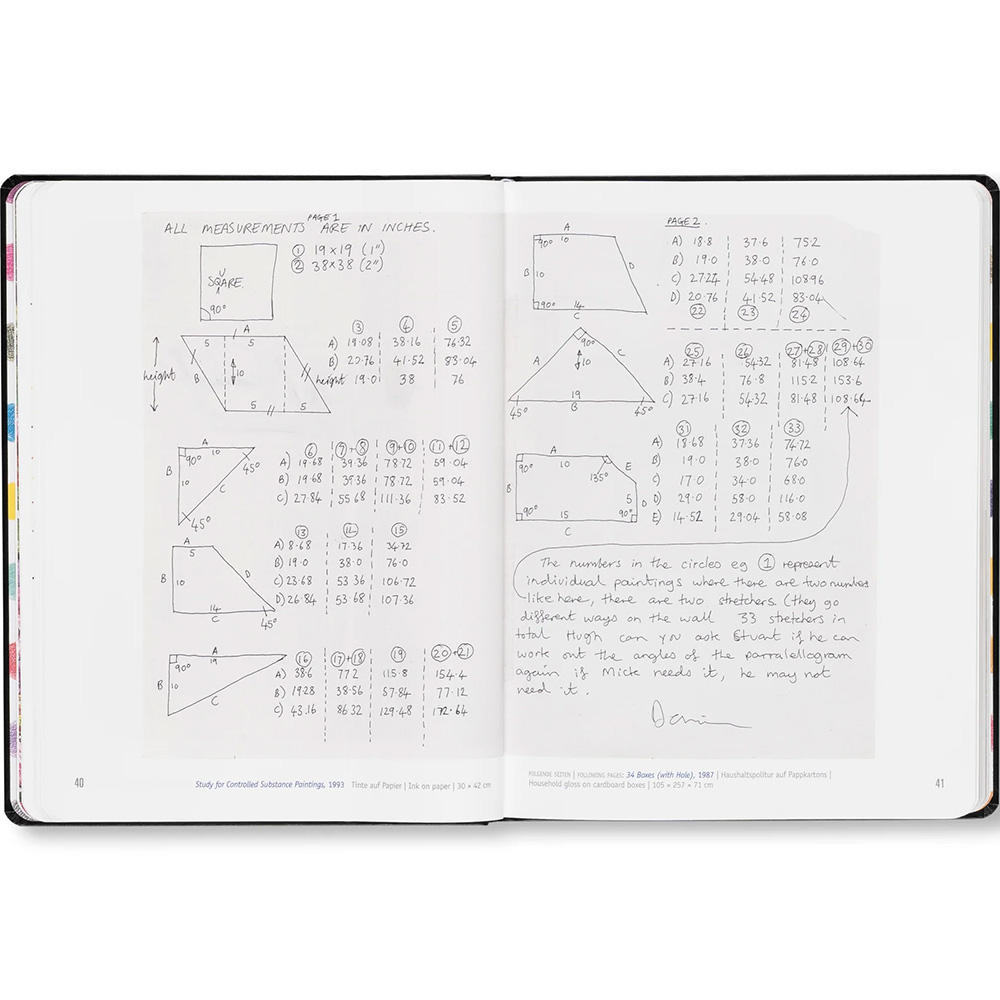 PAGE 1
ALL MEASUREMENTS ARE IN INCHES.
① 19 x 19 (1")
② 38 x 38 (2")
SQUARE.
90°
A
5 5
B
10
height
5 5
③ ④ ⑤
A) 19.08 38.16 76.32
B) 20.76 41.52 83.04
height 19.0 38 76
A
90° 10 45°
B
10 C
45°
⑥ ⑦+⑧ ⑨+⑩ ⑪+⑫
A) 19.68 39.36 78.72 59.04
B) 19.68 39.36 78.72 59.04
C) 27.84 55.68 111.36 83.52
A
5
B 10 D
14
C 45°
⑬ ⑭ ⑮
A) 8.68 17.36 34.72
B) 19.0 38.0 76.0
C) 23.68 53.36 106.72
D) 26.84 53.68 107.36
A
19
90°
B 10
C
⑯ ⑰+⑱ ⑲ ⑳+㉑
A) 38.6 77.2 115.8 154.4
B) 19.28 38.56 57.84 77.12
C) 43.16 86.32 129.48 172.64
PAGE 2.
A
90° 10
B 10 D
90° 14
C
A) 18.8 37.6 75.2
B) 19.0 38.0 76.0
C) 27.24 54.48 108.96
D) 20.76 41.52 83.04
㉒ ㉓ ㉔
90°
A C
10
19
45° B 45°
㉕ ㉖ ㉗+㉘ ㉙+㉚
A) 27.16 54.32 81.48 108.64
B) 38.4 76.8 115.2 153.6
C) 27.16 54.32 81.48 108.64
A
90° 10 E
135°
B 5 D
90° 15 90°
C
㉛ ㉜ ㉝
A) 18.68 37.36 74.72
B) 19.0 38.0 76.0
C) 17.0 34.0 68.0
D) 29.0 58.0 116.0
E) 14.52 29.04 58.08
The numbers in the circles eg ① represent
individual paintings where there are two numbers
like here, there are two stretchers. (they go
different ways on the wall 33 stretchers in
total Hugh can you ask Stuart if he can
work out the angles of the parralellogram
again if Mick needs it, he may not
need it.
Damien
40
Study for Controlled Substance Paintings, 1993 Tinte auf Papier | Ink on paper | 30 × 42 cm
FOLGENDE SEITEN | FOLLOWING PAGES: 34 Boxes (with Hole), 1987 | Haushaltspolitur auf Pappkartons |
Household gloss on cardboard boxes | 105 × 257 × 71 cm
41